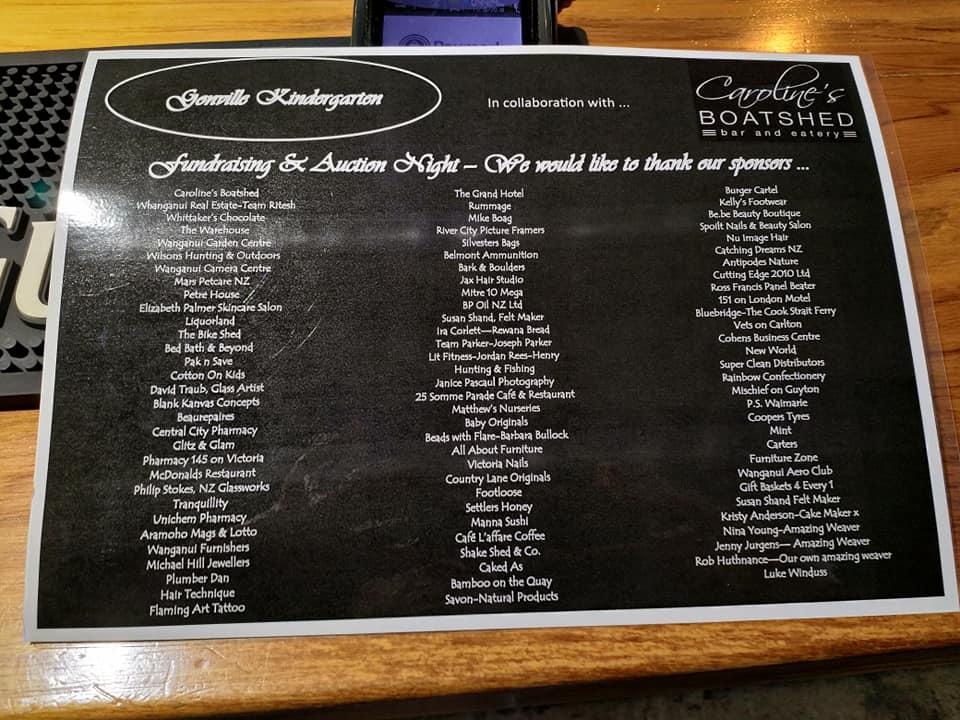 Gonville Kindergarten
In collaboration with ...
Caroline's
BOATSHED
bar and eatery
Fundraising & Auction Night – We would like to thank our sponsors ...
Caroline's Boatshed
Whanganui Real Estate-Team Ritesh
Whittaker's Chocolate
The Warehouse
Wanganui Garden Centre
Wilsons Hunting & Outdoors
Wanganui Camera Centre
Mars Petcare NZ
Petre House
Elizabeth Palmer Skincare Salon
Liquorland
The Bike Shed
Bed Bath & Beyond
Pak n Save
Cotton On Kids
David Traub, Glass Artist
Blank Kanvas Concepts
Beaurepaires
Central City Pharmacy
Glitz & Glam
Pharmacy 145 on Victoria
McDonalds Restaurant
Philip Stokes, NZ Glassworks
Tranquillity
Unichem Pharmacy
Aramoho Mags & Lotto
Wanganui Furnishers
Michael Hill Jewellers
Plumber Dan
Hair Technique
Flaming Art Tattoo
The Grand Hotel
Rummage
Mike Boag
River City Picture Framers
Silvesters Bags
Belmont Ammunition
Bark & Boulders
Jax Hair Studio
Mitre 10 Mega
BP Oil NZ Ltd
Susan Shand, Felt Maker
Ira Corlett—Rewana Bread
Team Parker-Joseph Parker
Lit Fitness-Jordan Rees-Henry
Hunting & Fishing
Janice Pascaul Photography
25 Somme Parade Café & Restaurant
Matthew's Nurseries
Baby Originals
Beads with Flare-Barbara Bullock
All About Furniture
Victoria Nails
Country Lane Originals
Footloose
Settlers Honey
Manna Sushi
Café L'affare Coffee
Shake Shed & Co.
Caked As
Bamboo on the Quay
Savon-Natural Products
Burger Cartel
Kelly's Footwear
Be.be Beauty Boutique
Spoilt Nails & Beauty Salon
Nu Image Hair
Catching Dreams NZ
Antipodes Nature
Cutting Edge 2010 Ltd
Ross Francis Panel Beater
151 on London Motel
Bluebridge-The Cook Strait Ferry
Vets on Carlton
Cohens Business Centre
New World
Super Clean Distributors
Rainbow Confectionery
Mischief on Guyton
P.S. Waimarie
Coopers Tyres
Mint
Carters
Furniture Zone
Wanganui Aero Club
Gift Baskets 4 Every 1
Susan Shand Felt Maker
Kristy Anderson-Cake Maker x
Nina Young-Amazing Weaver
Jenny Jurgens— Amazing Weaver
Rob Huthnance—Our own amazing weaver
Luke Winduss